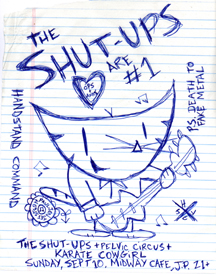 THE
SHUT-UPS
ARE
#1
P.S. DEATH TO
FAKE METAL
HANDSTAND COMMAND
THE SHUT-UPS + PELVIC CIRCUS +
KARATE COWGIRL
SUNDAY, SEPT 10. MIDWAY CAFE, J.P. 21+